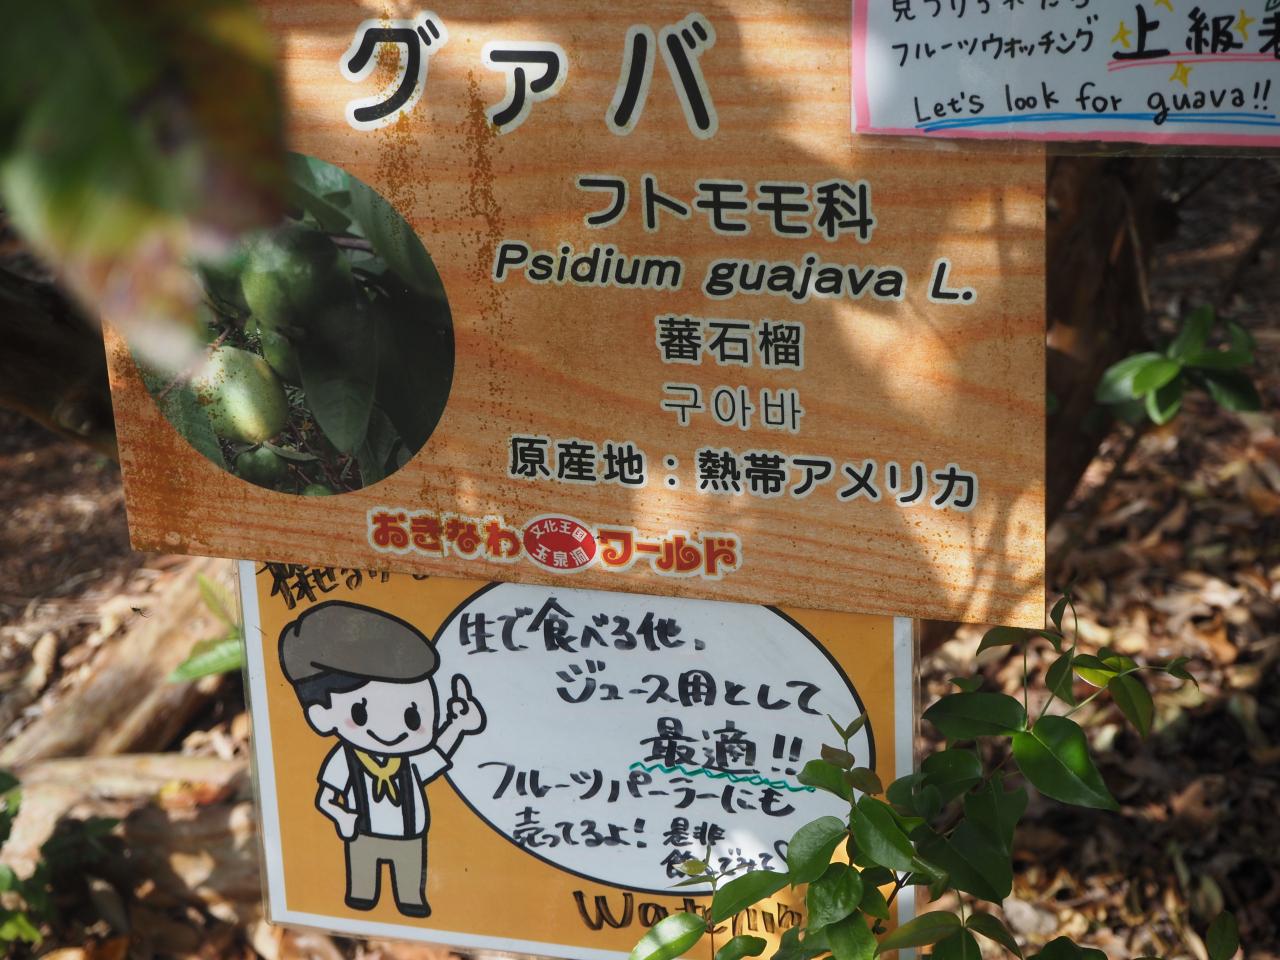 グァバ
フトモモ科
Psidium guajava L.
蕃石榴
구아바
原産地：熱帯アメリカ
おきなわ 文化王国 玉泉洞 ワールド
フルーツウォッチング 上級
Let's look for guava!!
生で食べる他、
ジュース用として
最適!!
フルーツパーラーにも
売ってるよ! 是非
飲んでみて